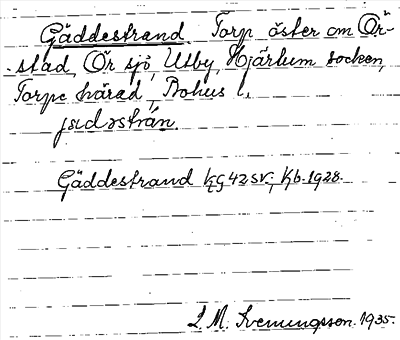 Gäddestrand. Torp öster om Ör-
stad, Ör sjö, Utby, Hjärtum socken,
Torpe härad, Bohus l.
jɛdəstrán.
Gäddestrand KG 42 SV; Kb. 1928.
L. M. Svenungsson. 1935.